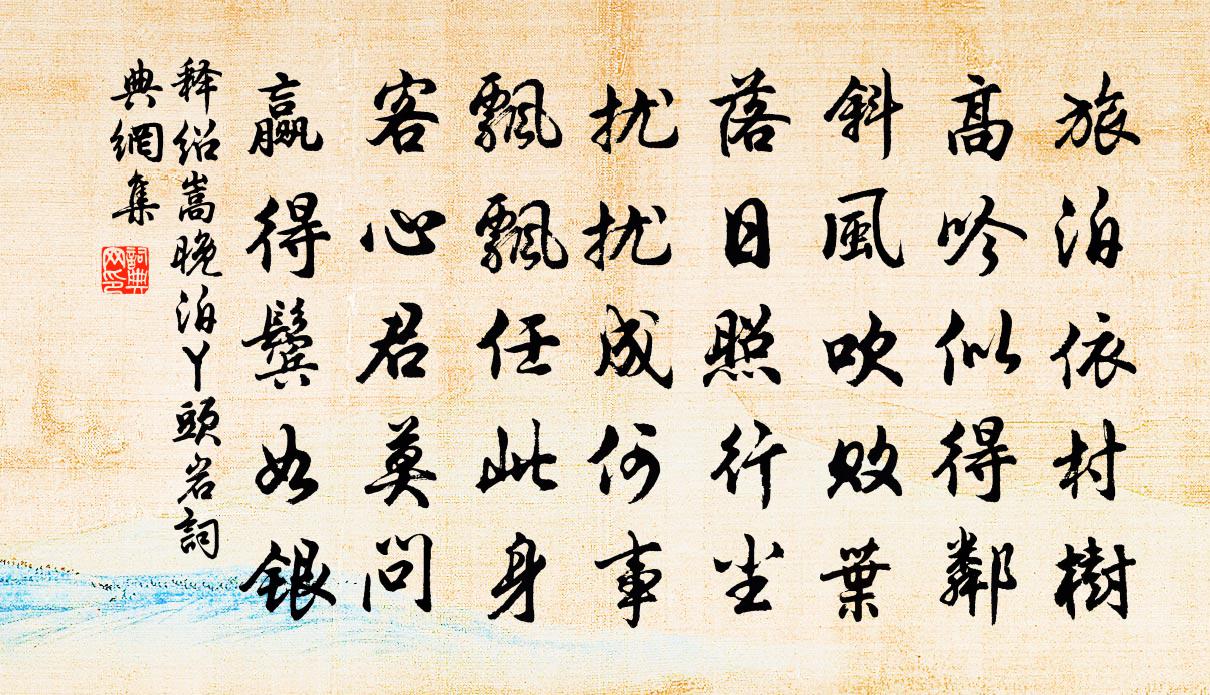 旅泊依村樹
高吟似得鄰
斜風吹敗葉
落日照行尘
扰扰成何事
飄飄任此身
客心君莫問
贏得鬢如銀
释紹嵩晚泊丫頭岩詞
典網集
詞典
网印